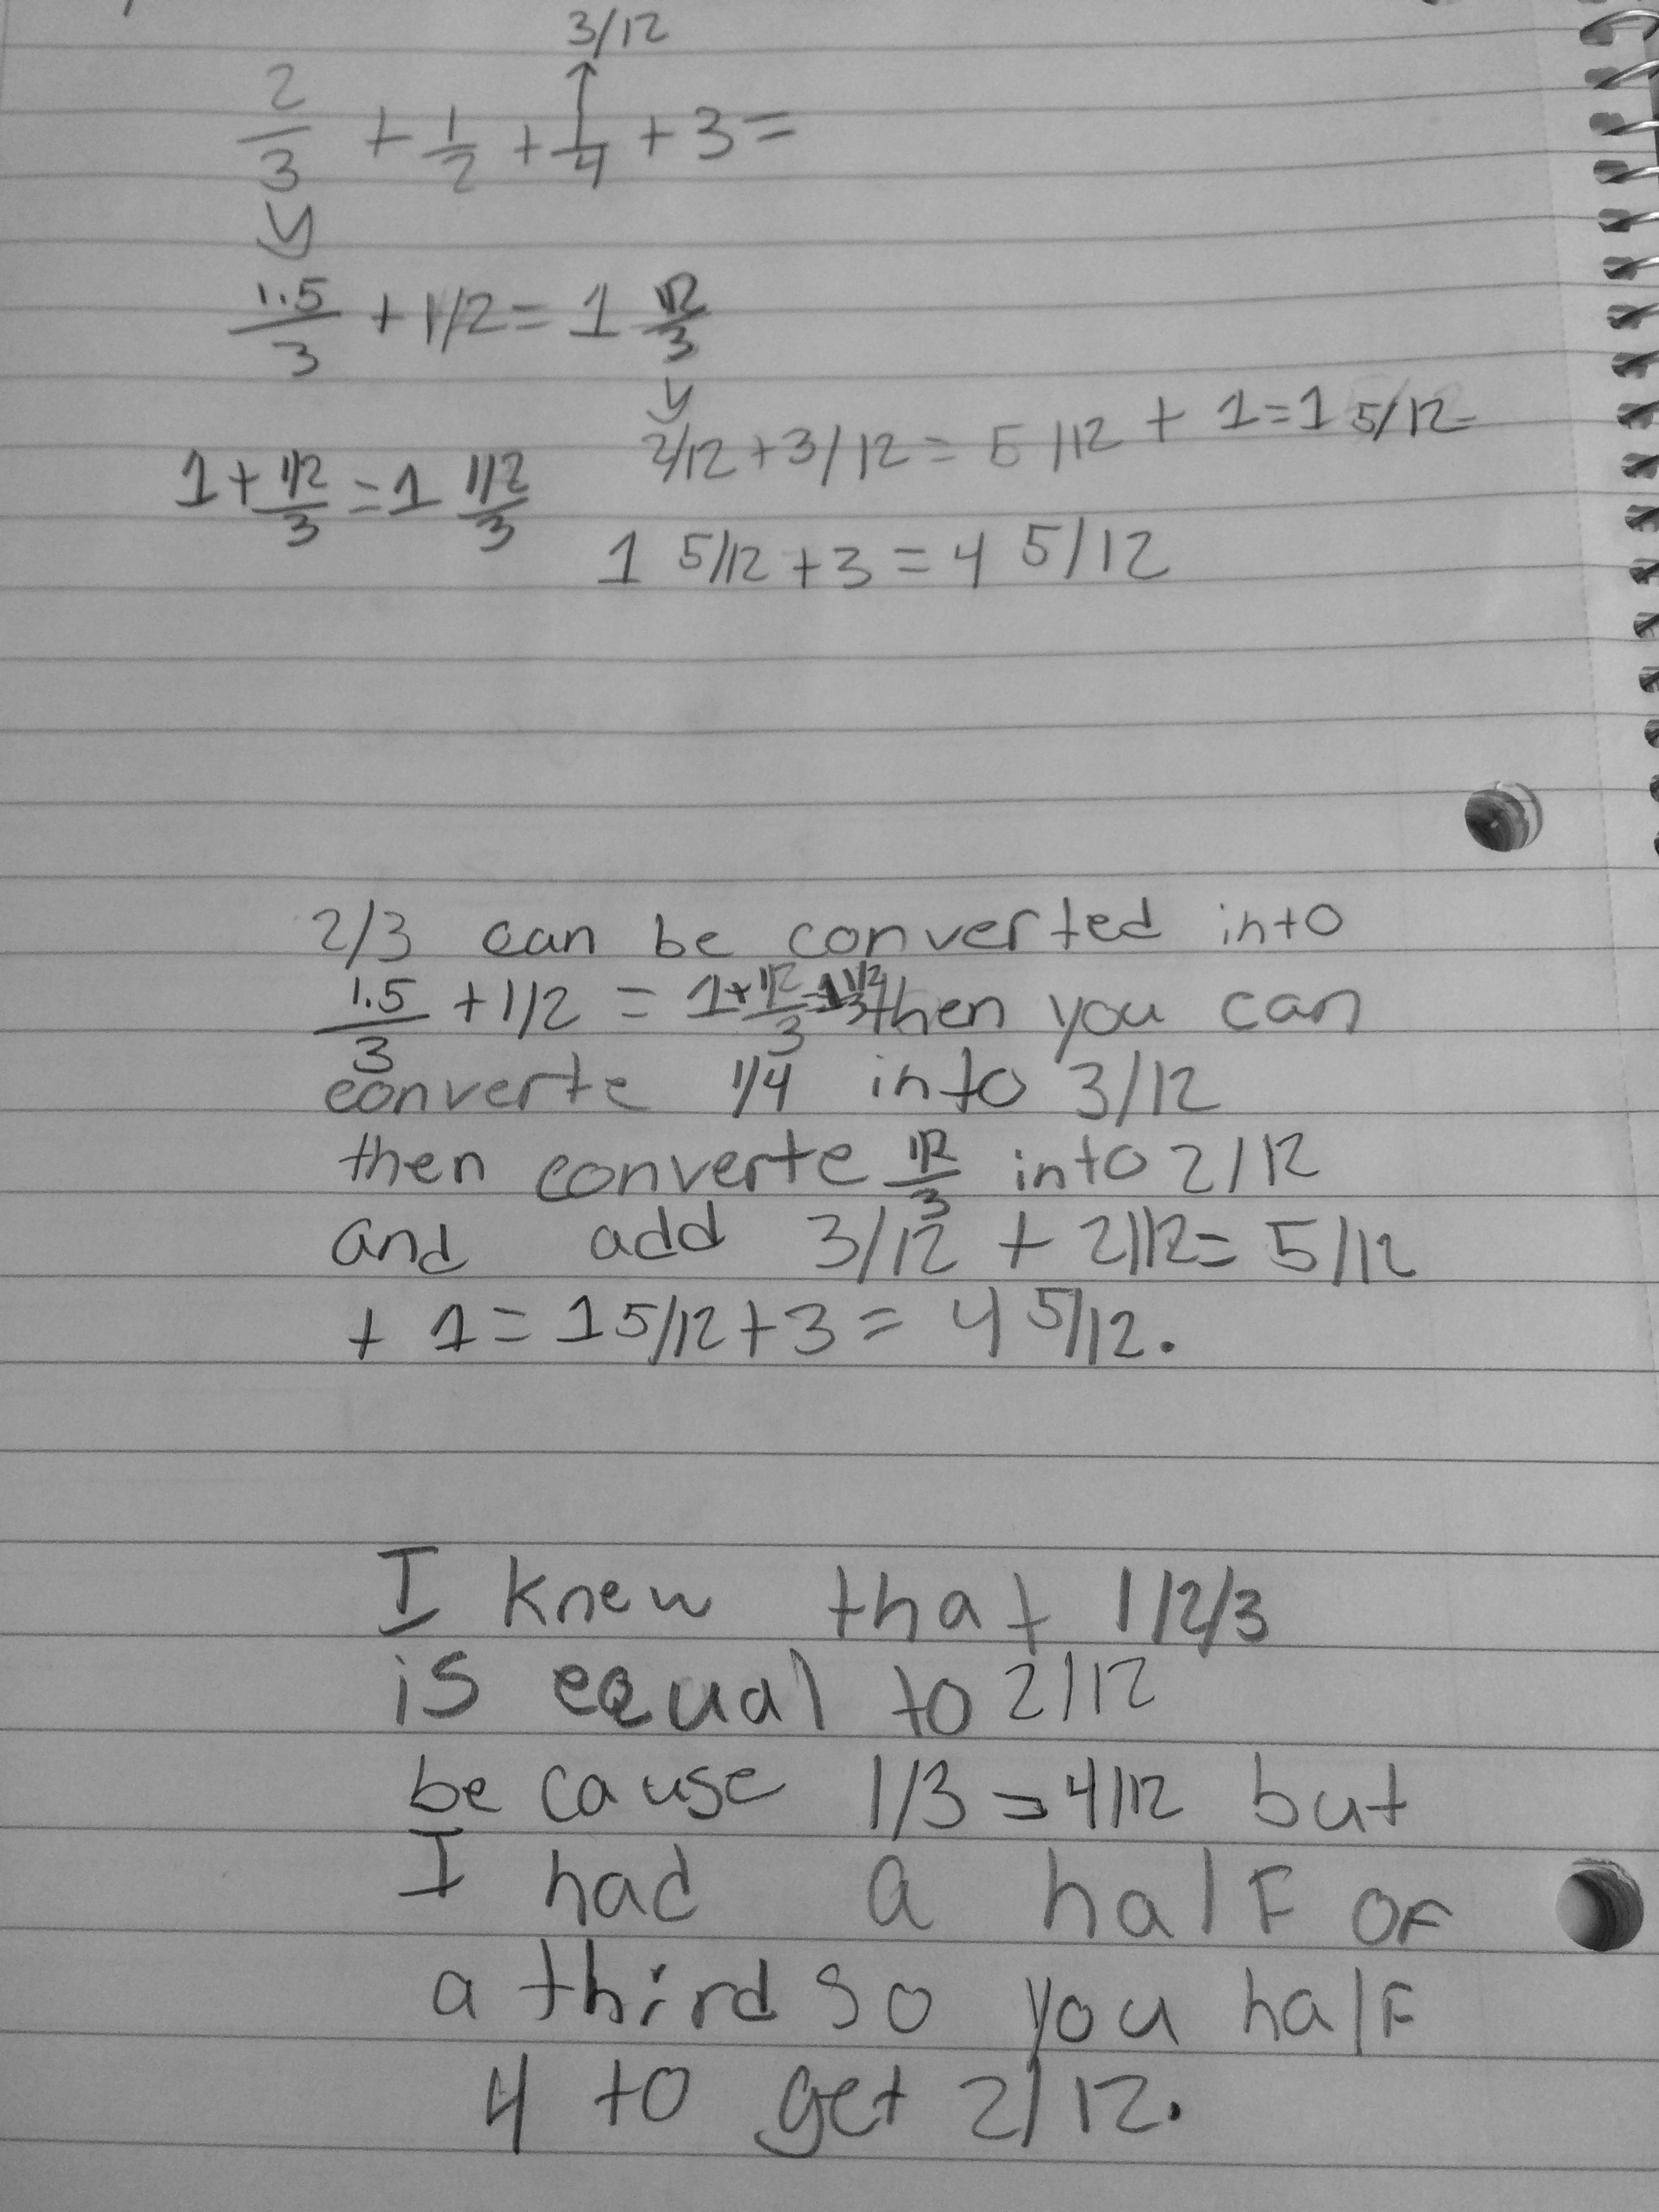 3/12
2/3 + 1/2 + 1/4 + 3 =
1.5/3 + 1/2 = 1 1/2/3
2/12 + 3/12 = 5/12 + 1 = 1 5/12
1 + 1/2/3 = 1 1/2/3
1 5/12 + 3 = 4 5/12
2/3 can be converted into
1.5/3 + 1/2 = 1 + 1/2/3 = 1 1/2/3 then you can
converte 1/4 into 3/12
then converte 1/2/3 into 2/12
and add 3/12 + 2/12 = 5/12
+ 1 = 1 5/12 + 3 = 4 5/12.
I knew that 1/2/3
is equal to 2/12
because 1/3 = 4/12 but
I had a half of
a third so you half
4 to get 2/12.